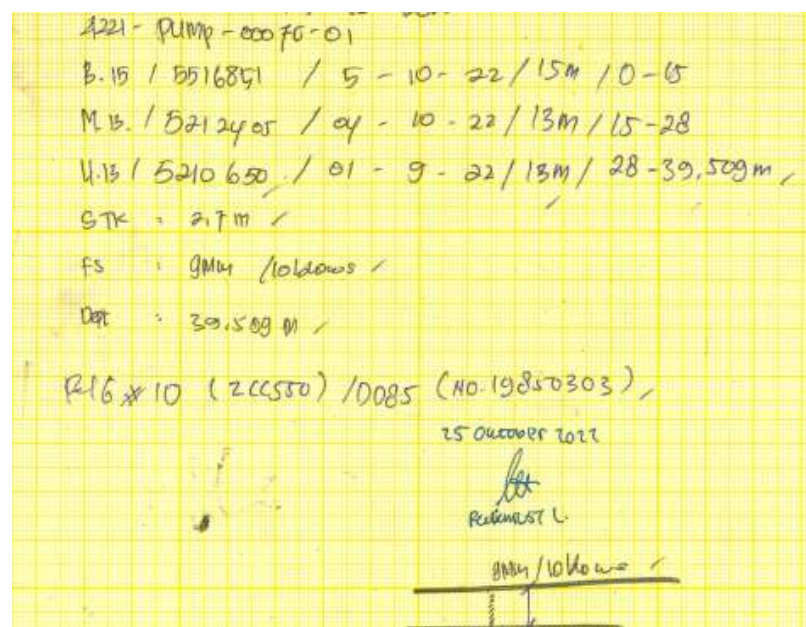 4221- PUMP-00076-01
B.15 / 5516851 / 5 - 10 - 22 / 15m / 0-15
M.13. / 5212405 / 04 - 10 - 22 / 13m / 15-28
U.13 / 5210650 / 01 - 9 - 22 / 13m / 28-39,509m
STK : 2,7 m
FS : 9mm /10blows
Dept : 39,509 m
10 (2CC550) /0085 (NO.19850303)
25 October 2022
9mm/10blows